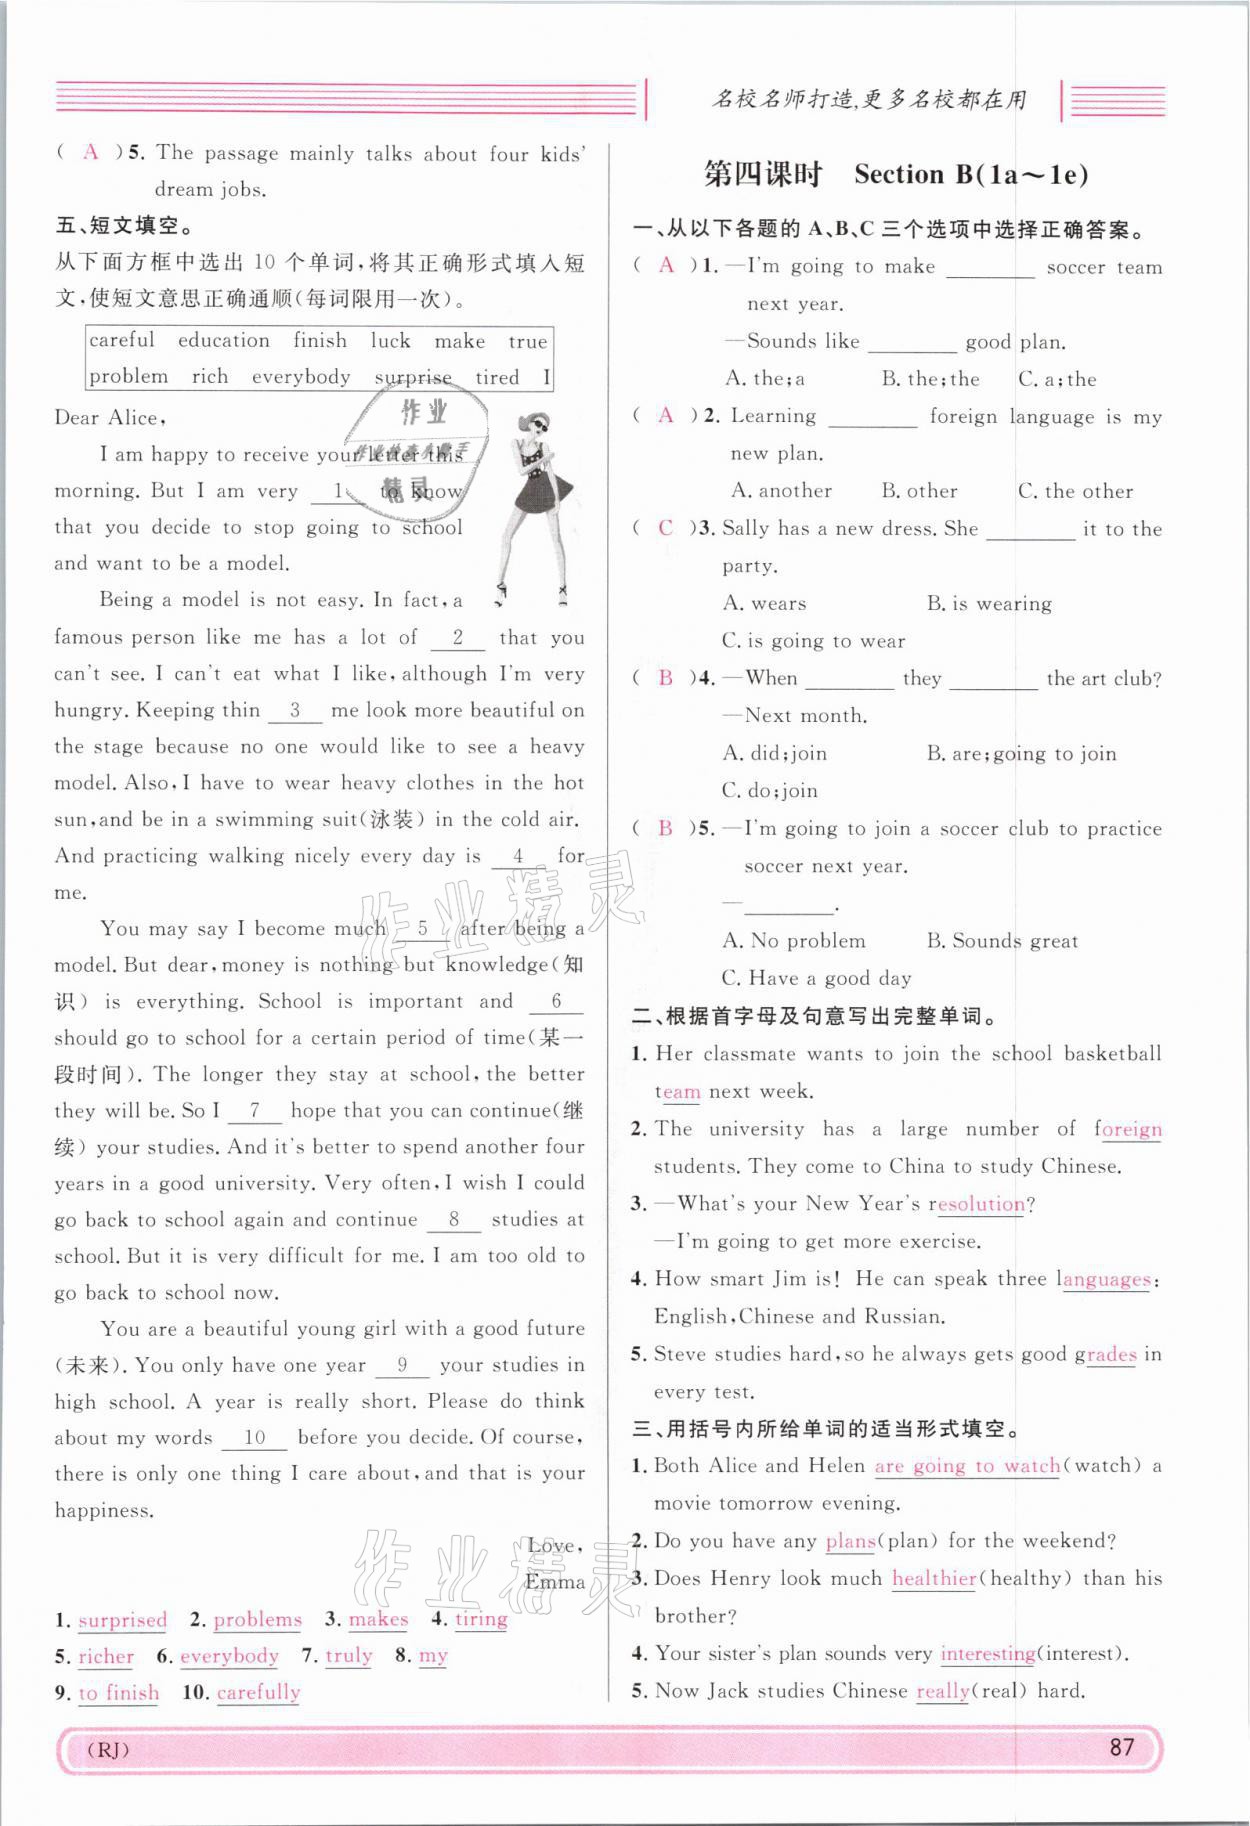 名校名师打造,更多名校都在用
( A )5. The passage mainly talks about four kids'
dream jobs.
五、短文填空。
从下面方框中选出 10 个单词,将其正确形式填入短
文,使短文意思正确通顺(每词限用一次)。
careful education finish luck make true
problem rich everybody surprise tired I
Dear Alice,
I am happy to receive your letter this
morning. But I am very 1 to know
that you decide to stop going to school
and want to be a model.
Being a model is not easy. In fact, a
famous person like me has a lot of 2 that you
can't see. I can't eat what I like, although I'm very
hungry. Keeping thin 3 me look more beautiful on
the stage because no one would like to see a heavy
model. Also, I have to wear heavy clothes in the hot
sun, and be in a swimming suit(泳装) in the cold air.
And practicing walking nicely every day is 4 for
me.
You may say I become much 5 after being a
model. But dear, money is nothing but knowledge(知
识) is everything. School is important and 6
should go to school for a certain period of time(某一
段时间). The longer they stay at school, the better
they will be. So I 7 hope that you can continue(继
续) your studies. And it's better to spend another four
years in a good university. Very often, I wish I could
go back to school again and continue 8 studies at
school. But it is very difficult for me. I am too old to
go back to school now.
You are a beautiful young girl with a good future
(未来). You only have one year 9 your studies in
high school. A year is really short. Please do think
about my words 10 before you decide. Of course,
there is only one thing I care about, and that is your
happiness.
Love,
Emma
1. surprised 2. problems 3. makes 4. tiring
5. richer 6. everybody 7. truly 8. my
9. to finish 10. carefully
第四课时 Section B(1a～1e)
一、从以下各题的 A、B、C 三个选项中选择正确答案。
( A )1. —I'm going to make ________ soccer team
next year.
—Sounds like ________ good plan.
A. the;a B. the;the C. a;the
( A )2. Learning ________ foreign language is my
new plan.
A. another B. other C. the other
( C )3. Sally has a new dress. She ________ it to the
party.
A. wears B. is wearing
C. is going to wear
( B )4. —When ________ they ________ the art club?
—Next month.
A. did;join B. are;going to join
C. do;join
( B )5. —I'm going to join a soccer club to practice
soccer next year.
—________.
A. No problem B. Sounds great
C. Have a good day
二、根据首字母及句意写出完整单词。
1. Her classmate wants to join the school basketball
team next week.
2. The university has a large number of foreign
students. They come to China to study Chinese.
3. —What's your New Year's resolution?
—I'm going to get more exercise.
4. How smart Jim is! He can speak three languages:
English, Chinese and Russian.
5. Steve studies hard, so he always gets good grades in
every test.
三、用括号内所给单词的适当形式填空。
1. Both Alice and Helen are going to watch(watch) a
movie tomorrow evening.
2. Do you have any plans(plan) for the weekend?
3. Does Henry look much healthier(healthy) than his
brother?
4. Your sister's plan sounds very interesting(interest).
5. Now Jack studies Chinese really(real) hard.
作业
作业检查小助手
精灵
作业精灵
作业精灵
(RJ)
87